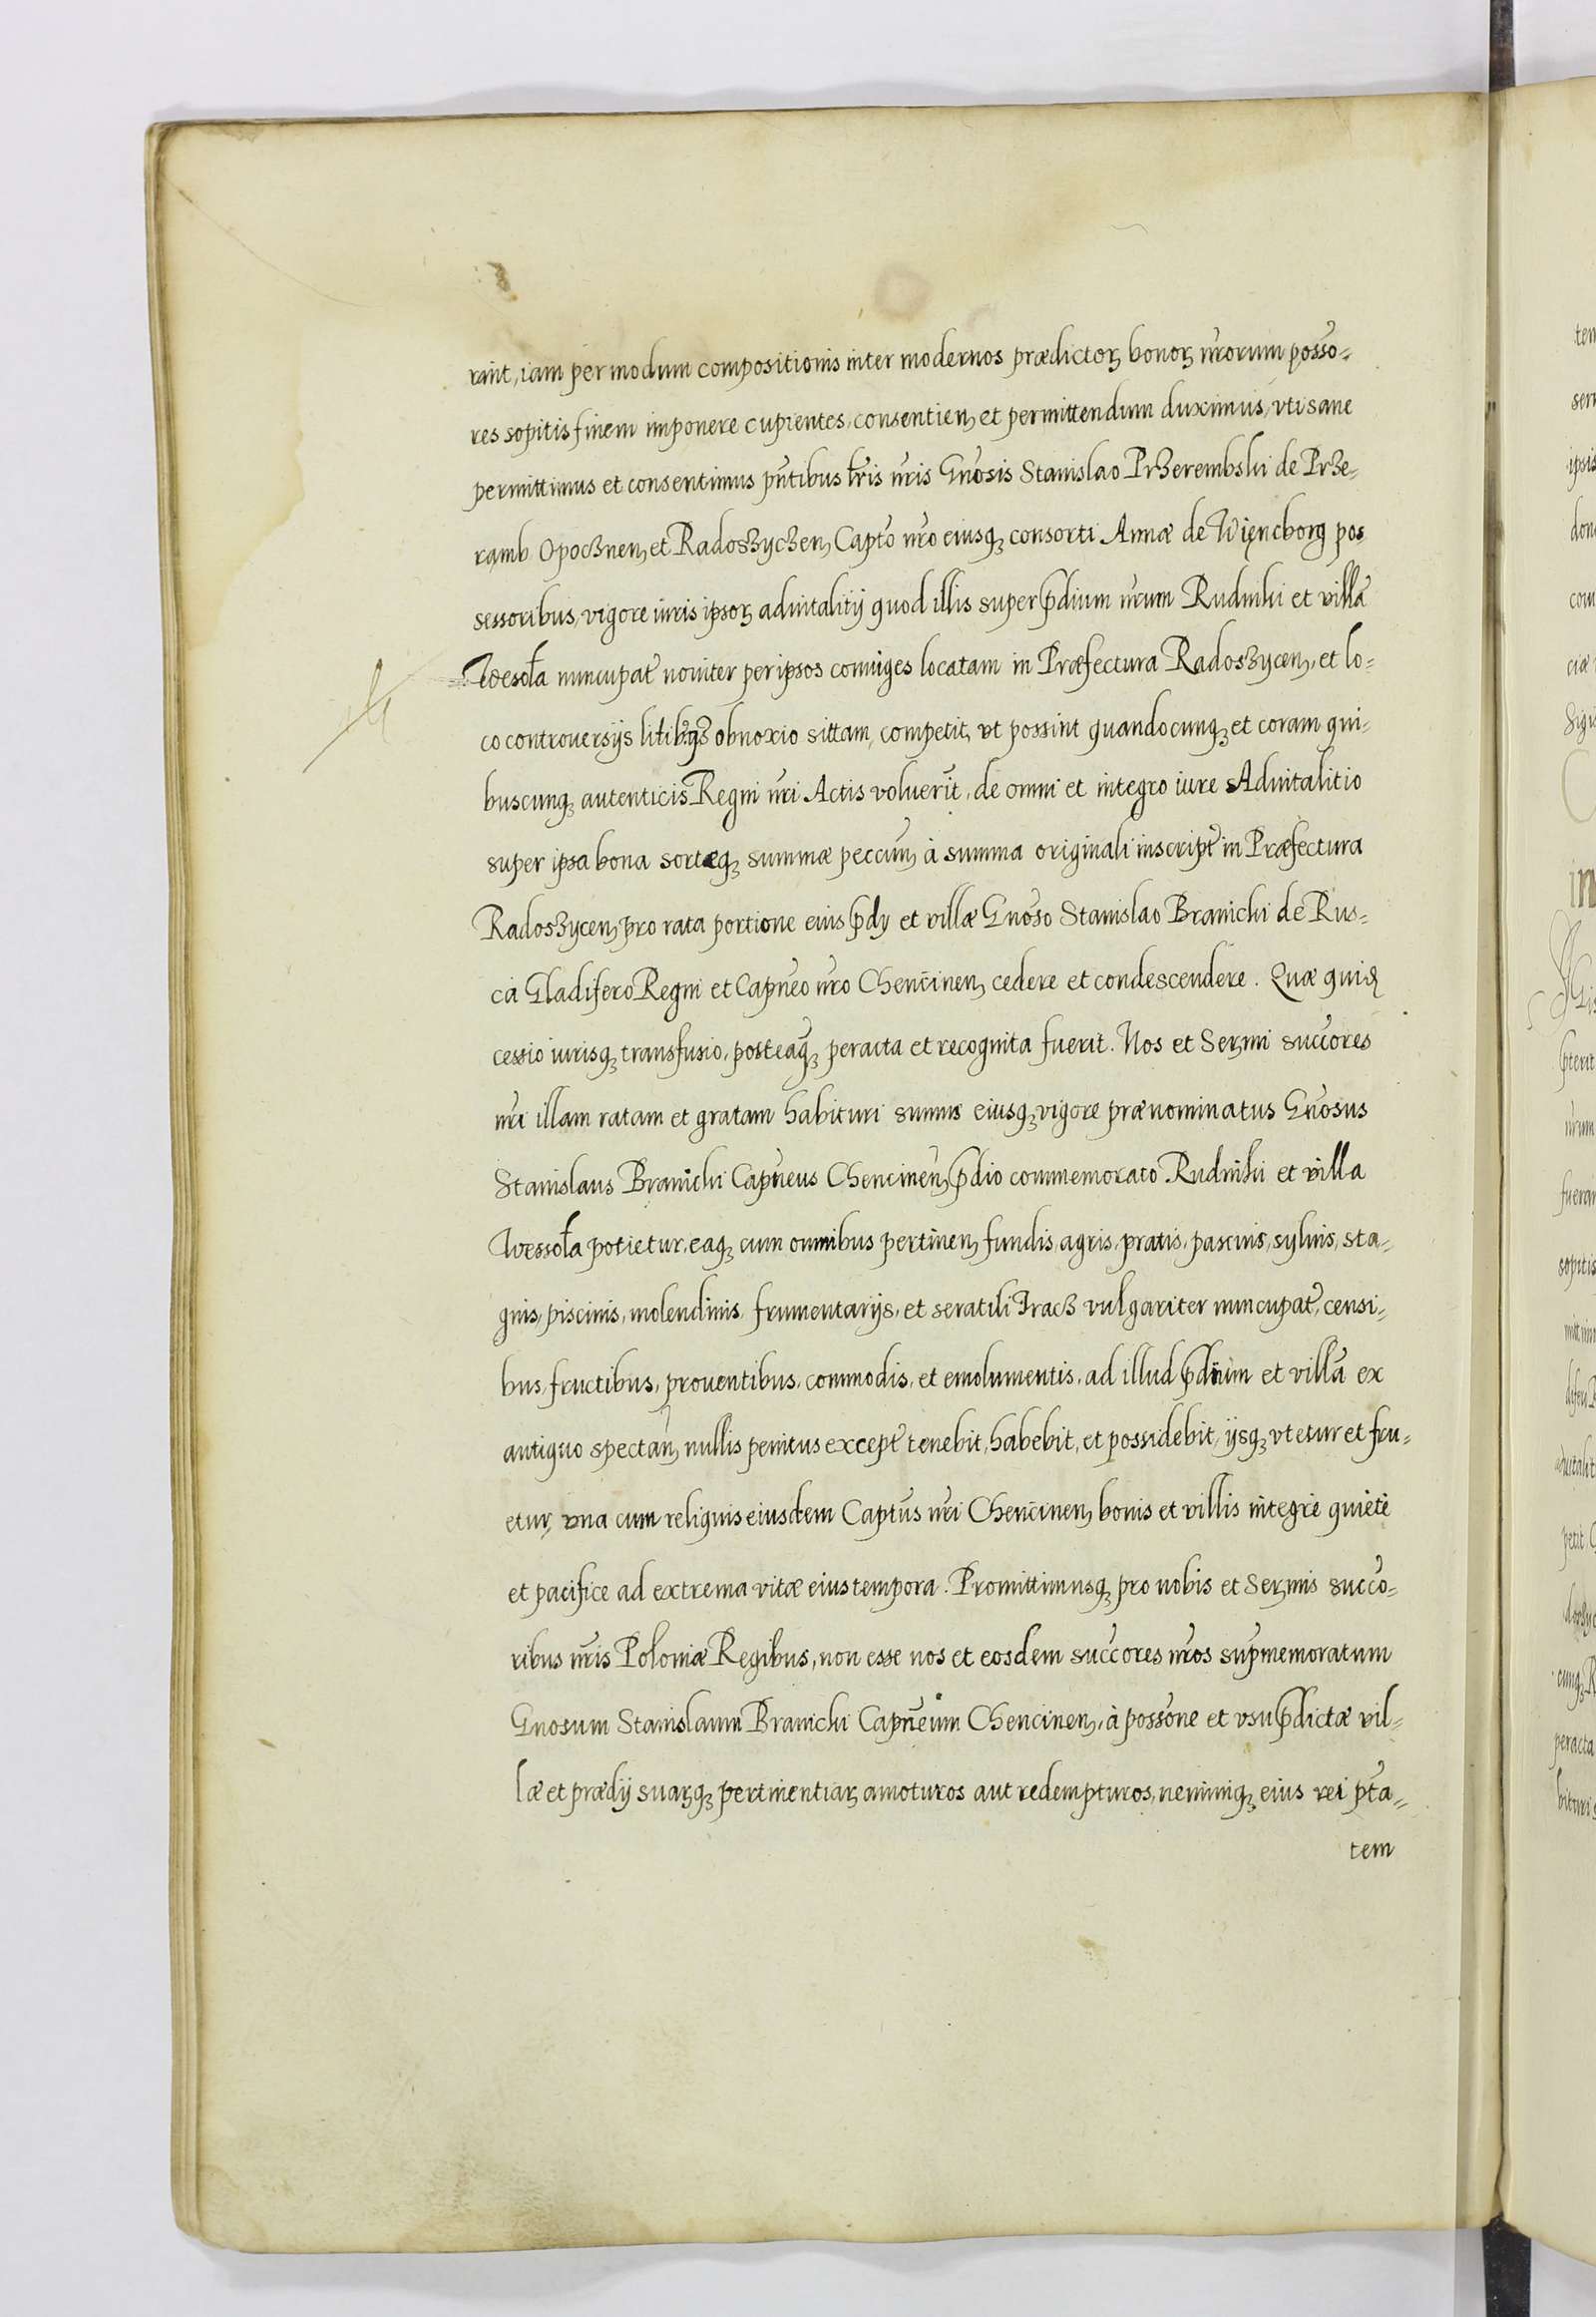 rint, iam per modum compositionis inter modernos prædictoꝝ bonoꝝ nr̃orum posso-
res sopitis finem imponere cupientes, consentienꝫ et permittendum duximus, vti sane
permittimus et consentimus pñtibus lr̃is nr̃is Gnõsis Stanislao Przerembski de Prze-
ramb Opocznenꝫ et Radoszyczenꝫ Capto nr̃o eiusqꝫ consorti Annæ de Więncborg pos
sessoribus, vigore iuris ipsoꝝ aduitalitij quod illis super p̃dium nr̃um Rudniki et villã
Wesoła nuncupat̃ nouiter per ipsos coniuges locatam in Præfectura Radoszycenꝫ, et lo-
co controuersijs litibꝰqꝫ obnoxio sittam, competit, vt possint quandocunqꝫ et coram qui-
buscunqꝫ autenticis Regni nr̃i Actis voluerĩt, de omni et integro iure Aduitalitio
super ipsa bona sortæqꝫ summæ peccũnꝫ à summa originali inscript̃ in Præfectura
Radoszycenꝫ pro rata portione eius p̃dy et villæ Gnõso Stanislao Branicki de Rus-
ca Gladifero Regni et Capñeo nr̃o Chencinenꝫ cedere et condescendere. Quæ quiꝗ
cessio iurisqꝫ transfusio, posteaqꝫ peracta et recognita fuerit. Nos et Serꝫmi succores
nr̃i illam ratam et gratam habituri sumus eiusqꝫ vigore prænominatus Gnõsus
Stanislaus Branicki Capñeus Chencinenꝫ p̃dio commemorato Rudniki et villa
Wessoła potietur, eaqꝫ cum omnibus pertinenꝫ fundis, agris, pratis, pascuis, syluis, sta-
gnis, piscinis, molendinis, frumentarijs, et seratili Tracz vulgariter nuncupat̃, censi-
bus, fructibus, prouentibus, commodis, et emolumentis, ad illud p̃dium et villã ex
antiquo spectañꝫ nullis penitus except̃ tenebit, habebit, et possidebit, ijsqꝫ vtetur et fru-
etur, vna cum reliquis eiusdem Captũs nr̃i Chencinenꝫ bonis et villis integre quiete
et pacifice ad extrema vitæ eius tempora. Promittimusqꝫ pro nobis et Serꝫmis succo-
ribus nr̃is Poloniæ Regibus, non esse nos et eosdem succores nr̃os sup̃memoratum
Gnosum Stanislaum Branicki Capñeum Chencinenꝫ, à possone et vsu p̃dictæ vil-
læ et prædij suarꝫqꝫ pertinentiaꝝ amoturos aut redempturos, neminiqꝫ eius rei ptã-
tem